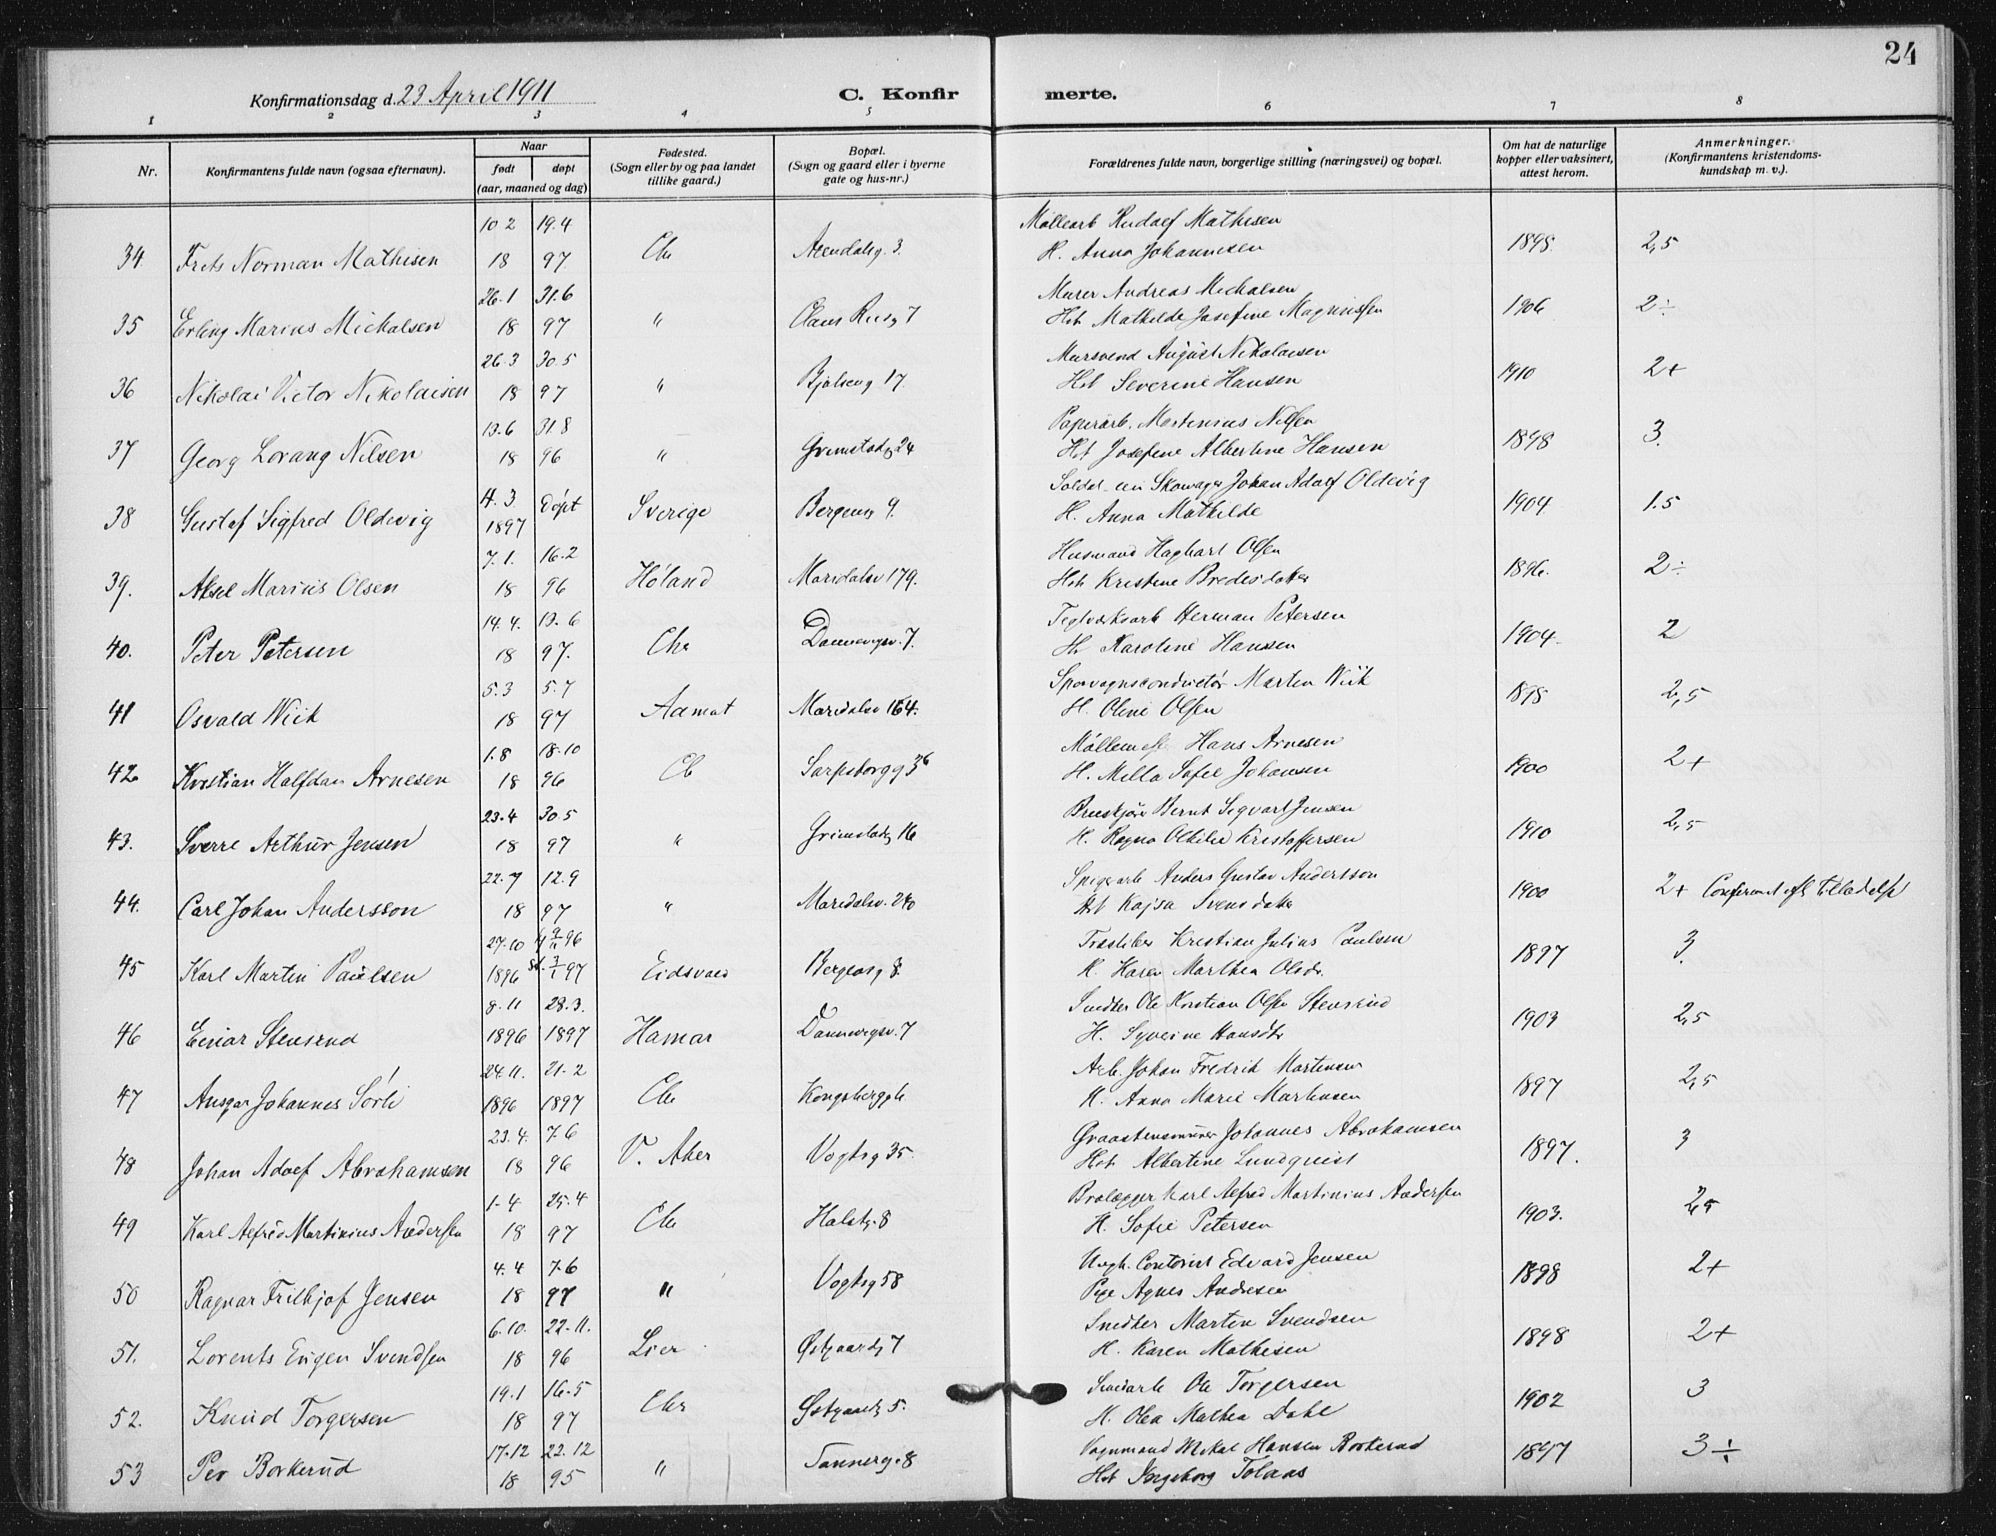 24
Konfirmationsdag d. 23 April 1911
C. Konfir merte.
1 2 3 4 5 6 7 8
Nr. Konfirmantens fulde navn (ogsaa efternavn). Naar født døpt (aar, maaned og dag)
Fødested. (Sogn eller by og paa landet tillike gaard.)
Bopæl. (Sogn og gaard eller i byerne gate og hus-nr.)
Forældrenes fulde navn, borgerlige stilling (næringsvei) og bopæl.
Om hat de naturlige kopper eller vaksinert, attest herom.
Anmerkninger. (Konfirmantens kristendoms-kundskap m. v.).
10.2 19.4 Møllearb Rudolf Mathisen
34. Frits Norman Mathisen 18 97 Chr Arendalsg. 3. H. Anna Johannesen 1898 2,5
26.1 31.6 Murer Andreas Michalsen
35 Erling Marius Michalsen 18 97 " Claus Riisg 7 Hst Mathilde Josefine Magnussen 1906 2÷
26.3 30.5 Mursvend August Nikolaisen
36 Nikolai Victor Nikolaisen 18 97 " Bjølseng 17. Hst Severine Hansen 1910 2+
13.6 31.8 Papirarb. Martinius Nilsen
37 Georg Lorang Nilsen 18 96 " Grimstadg 24 Hst Josefine Albertine Hansen 1898 3.
4.3 døpt Soldat Johan Adolf Oldevig
38 Gustaf Sigfred Oldevig 1897 Sverige Bergensg 9. H. Anna Mathilde 1904 1.5
7.1. 16.2 Husmand Haghart Olsen
39. Aksel Marius Olsen 18 96 Høland Maridalsv 179. Hst Kristine Bredesdatter 1896. 2÷
14.4. 13.6 Teglverksarb Herman Petersen
40. Peter Petersen 18 97. Chr Dannevigsv. 7. Hst Karoline Hansen 1904 2
5.3 5.7 Sporvagnsconductør Martin Wiik
41 Osvald Wiik 18 97 Aamot Maridalsv 164. H. Oline Olsen 1898 2,5
1.8 18.10 Hans Arnesen
42 Kristian Halfdan Arnesen 18 96 Ch Sarpsborgg 36 H. Milla Sofie Johansen 1900 2+
23.4 30.5 Bernt Sigvart Jensen
43. Sverre Arthur Jensen 18 97 " Grimstadg 16 H. Ragna Othilie Kristoffersen 1910 2,5
22.7 12.9 Spigerarb Anders Gustav Andersson
44. Carl Johan Andersson 18 97 " Maridalsv. 240 Hst Kajsa Svensdatter 1900 2+ Confirmert eft tilladelse
27.10 96 Kristian Julius Paulsen
45 Karl Martin Paulsen 1896 97 Eidsvold Bergensg 8. H. Karen Marthea Olsdr. 1897 3.
8.11 28.3. Snedker Ole Kristian Olsen Stensrud
46 Einar Stensrud 1896 1897 Hamar Dannevigsv. 7 H. Syverine Hansdtr 1903 2,5
24.11. 21.2 Arb. Johan Fredrik Martinsen
47 Ansgar Johannes Sørli 1896 1897 Chr H. Anna Marie Martinsen 1897 2,5
23.4. 7.6 Johannes Abrahamsen
48 Johan Adolf Abrahamsen 18 96 V. Aker Vogtsg 35. Hst Albertine Lundquist 1897. 3
1.4 25.4 Brolægger Karl Alfred Martinius Andersen
49 Karl Alfred Martinius Andersen 18 97 Chr Holstg. 8 H. Sofie Petersen 1903. 2,5
4.4 7.6 Ungk. Contorist Edvard Jensen
50 Ragnar Frithjof Jensen 18 97 " Vogtsg 58 Pige Agnes Andresen 1898 2+
6.10. 22.11. Snedker Martin Svendsen
51. Lorents Eugen Svendsen 18 96 Lier Østgaardg 7 H. Karen Mathisen 1898 2+
19.1 16.5 Ole Torgersen
52. Knud Torgersen 18 97 Chr Østgaardg 5. H. Olea Mathea Dahl 1902 3
17.12 22.12 Vognmand Mikal Hansen Borkerud
53 Per Borkerud 18 95 " Vannerg. 8 Hst Ingeborg Tolaas 1897 3÷